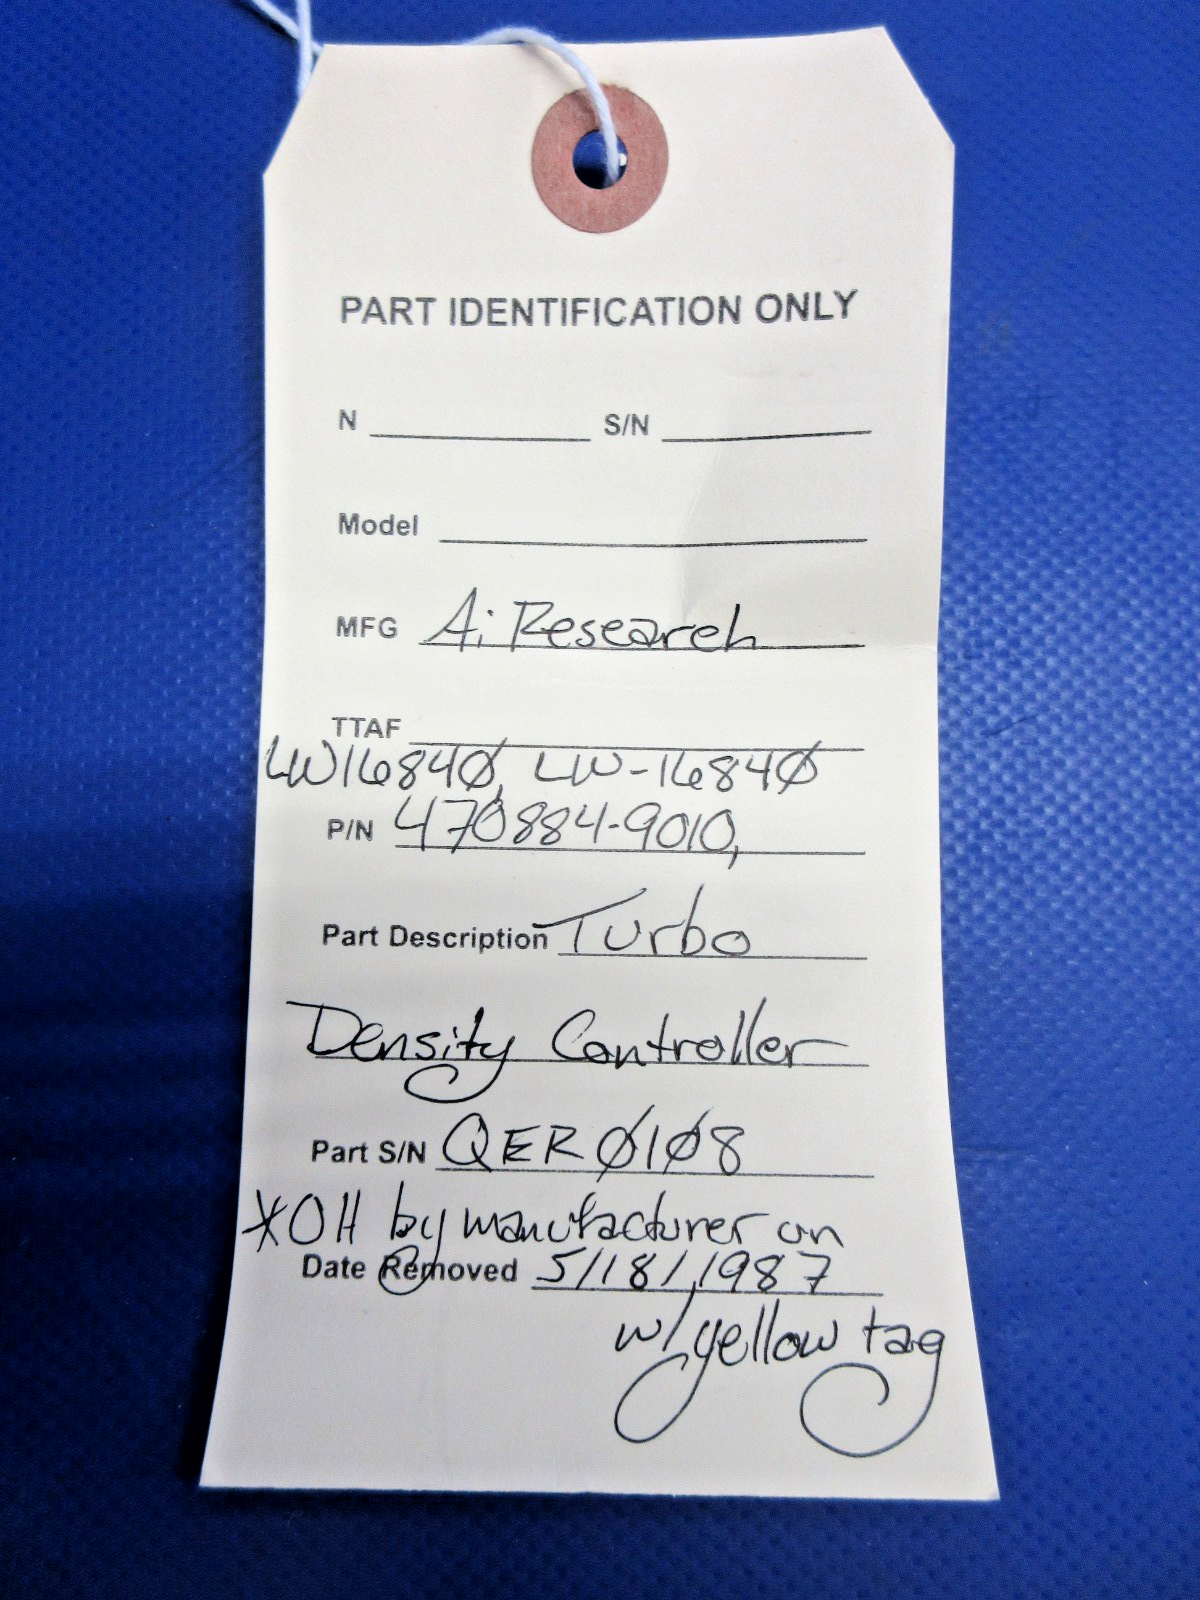 PART IDENTIFICATION ONLY
N S/N
Model
MFG Ai Research
TTAF
LW16840, LW-16840
P/N 470884-9010,
Part Description Turbo
Density Controller
Part S/N QER0108
*OH by manufacturer on
Date Removed 5/18/1987
w/yellow tag